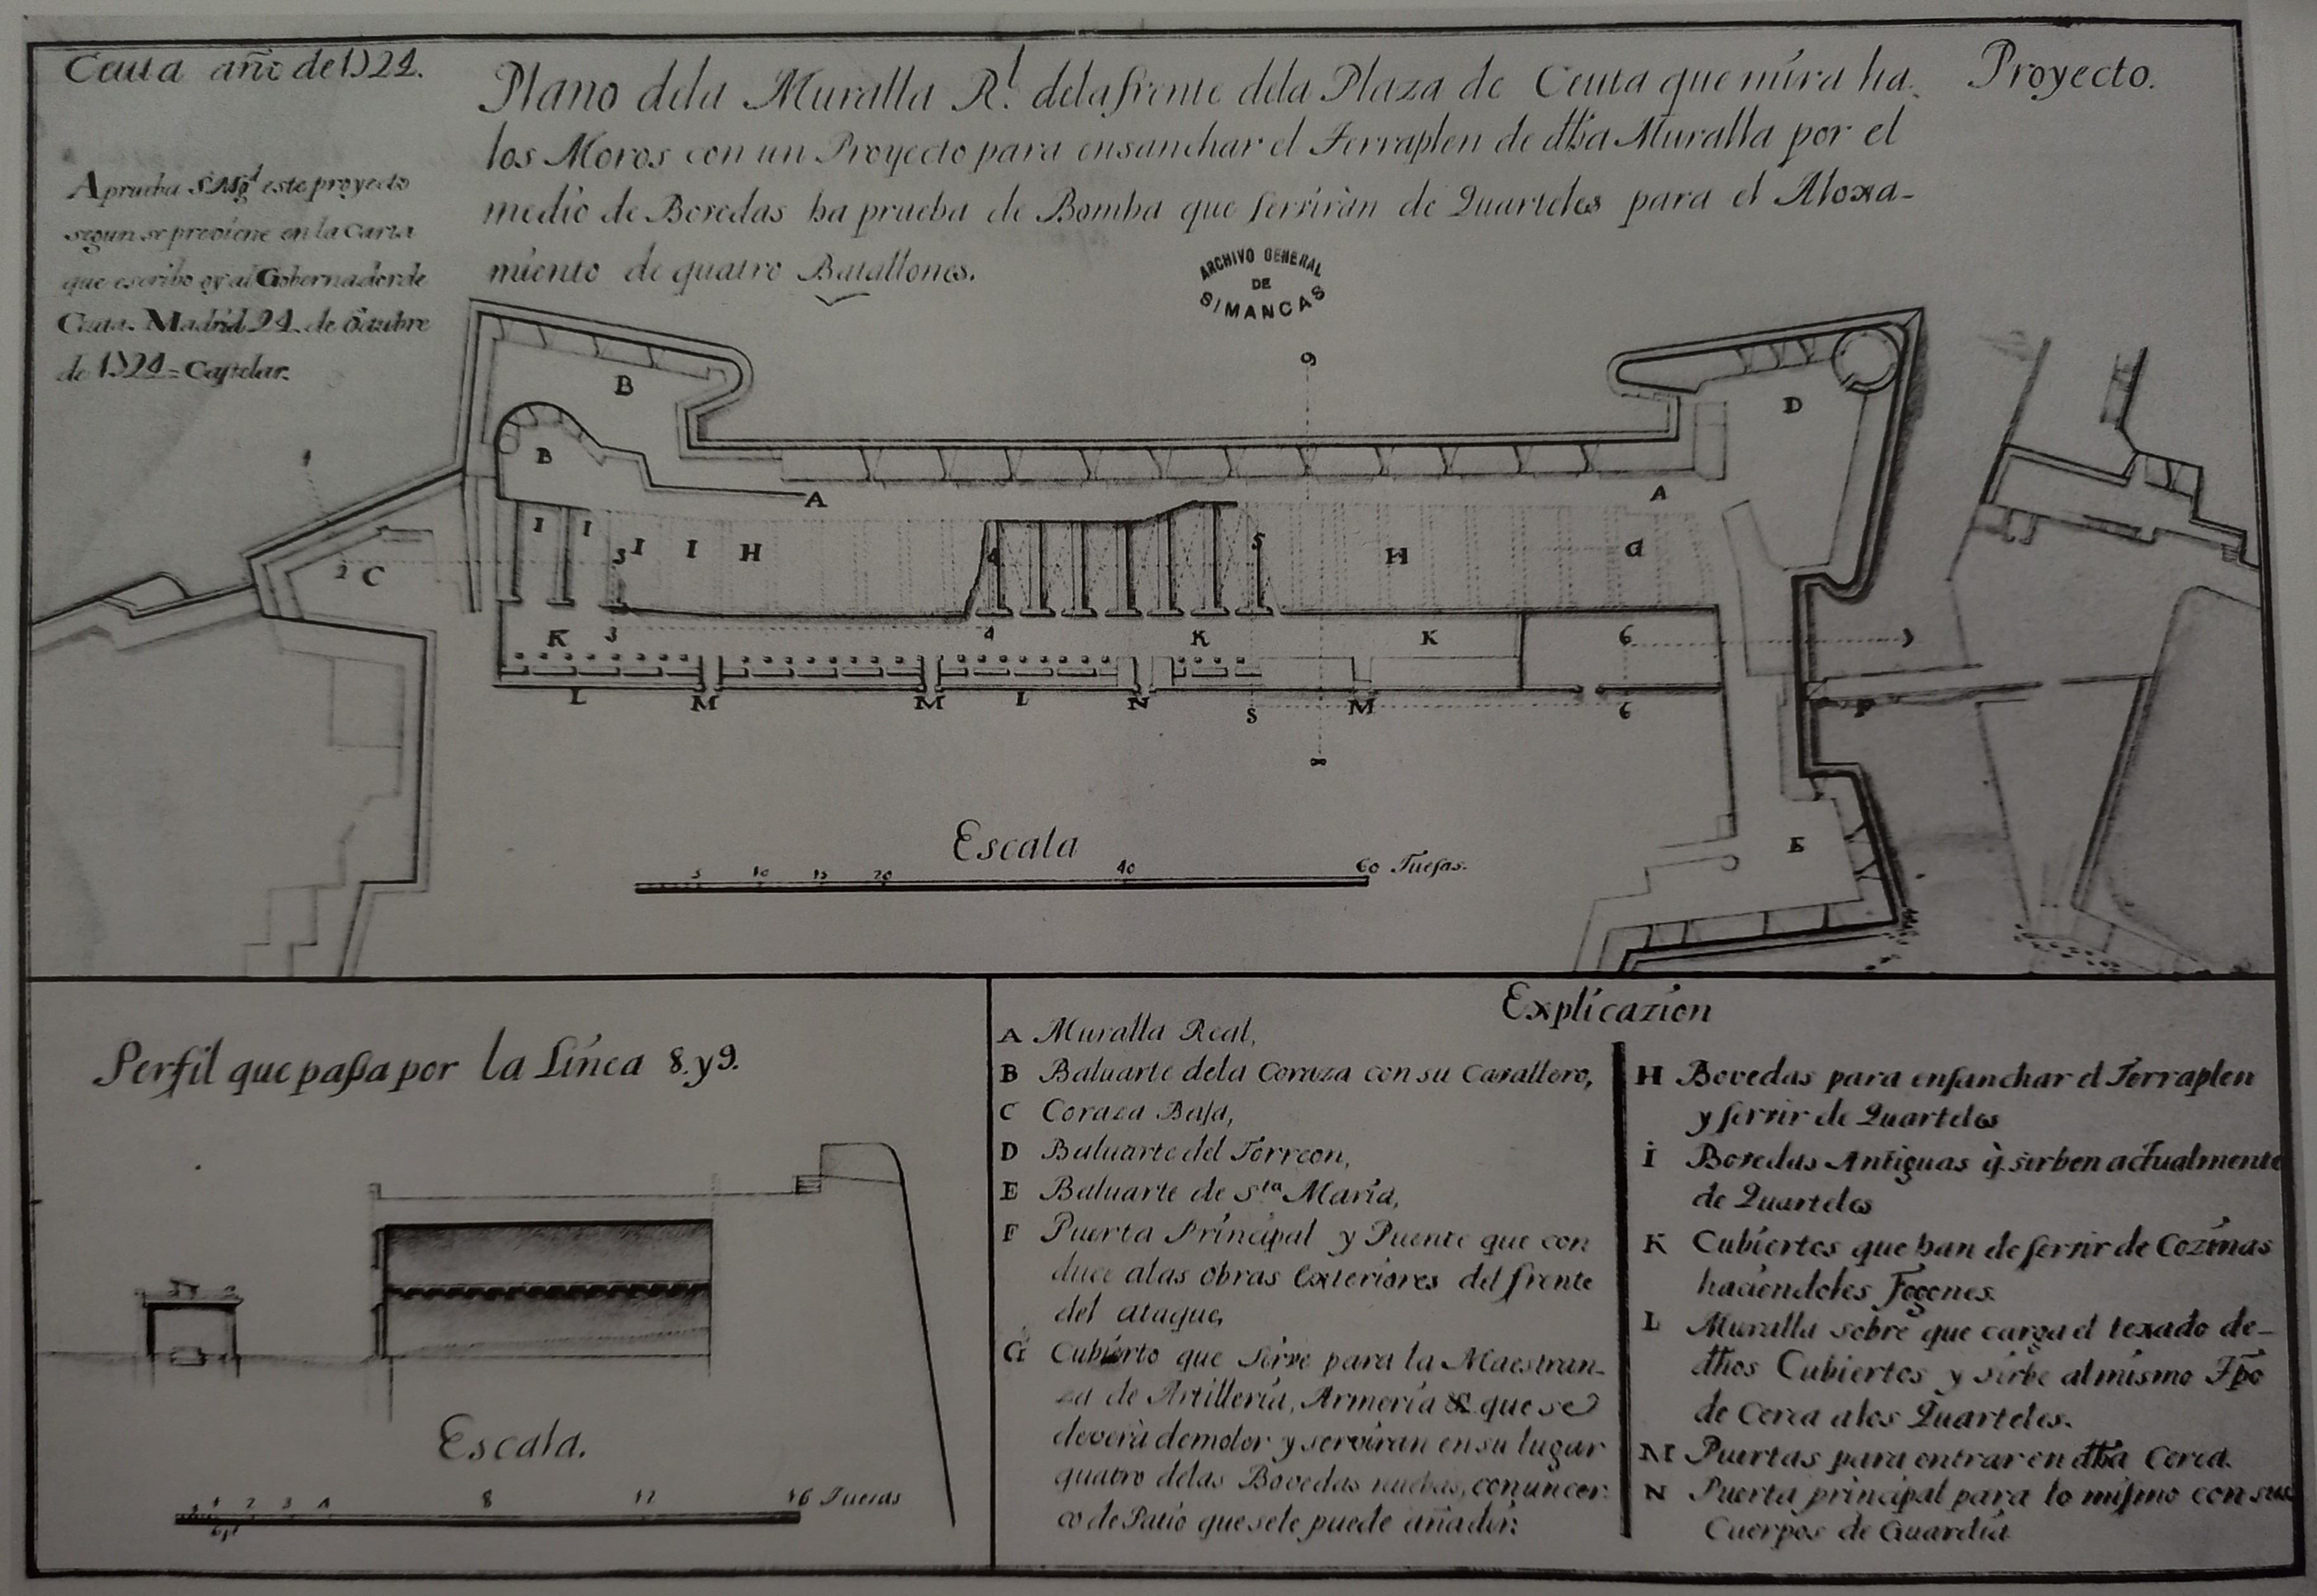 Ceuta año de 1724.
Aprueba S Mgd este proyecto
segun se previene en la Carta
que escribo oy al Gobernador de
Ceuta. Madrid 24 de Octubre
de 1724 = Castelar.
Plano dela Muralla Rl. delafrente dela Plaza de Ceuta que mira ha.
los Moros con un Proyecto para ensanchar el Terraplen de dha Muralla por el
medio de Bovedas ha prueba de Bomba que serviràn de Quarteles para el Aloxa-
miento de quatro Batallones.
Proyecto.
ARCHIVO GENERAL
DE
SIMANCAS
9
B
D
B
A
A
I
I
I
I
H
3
4
5
H
G
2
C
K
3
4
K
K
6
7
L
M
M
L
N
S
M
6
F
8
E
Escala
5
10
15
20
40
60 Tuesas.
Perfil que pasa por la Linea 8. y 9.
Escala.
1
2
3
4
8
12
16 Tuesas
Explicazion
A Muralla Real,
B Baluarte dela Coraza con su Cavallero,
C Coraza Baja,
D Baluarte del Torreon,
E Baluarte de Sta Maria,
F Puerta Principal y Puente que con
duce alas obras Exteriores del frente
del ataque,
G Cubierto que sirve para la Maestran-
za de Artilleria, Armeria & que se
deverà demoler y serviran en su lugar
quatro delas Bovedas nuebas, con un cer-
co de Patio que sele puede añadir:
H Bovedas para ensanchar el Terraplen
y servir de Quarteles
I Bovedas Antiguas q̃. sirben actualmente
de Quarteles
K Cubiertos que han de servir de Cozinas
haciendoles Fogones.
L Muralla sobre que carga el texado de-
dhos Cubiertos y sirbe al mismo Tpo
de Cerca alos Quarteles.
M Puertas para entrar en dha Cerca.
N Puerta principal para lo mismo con sus
Cuerpos de Guardia